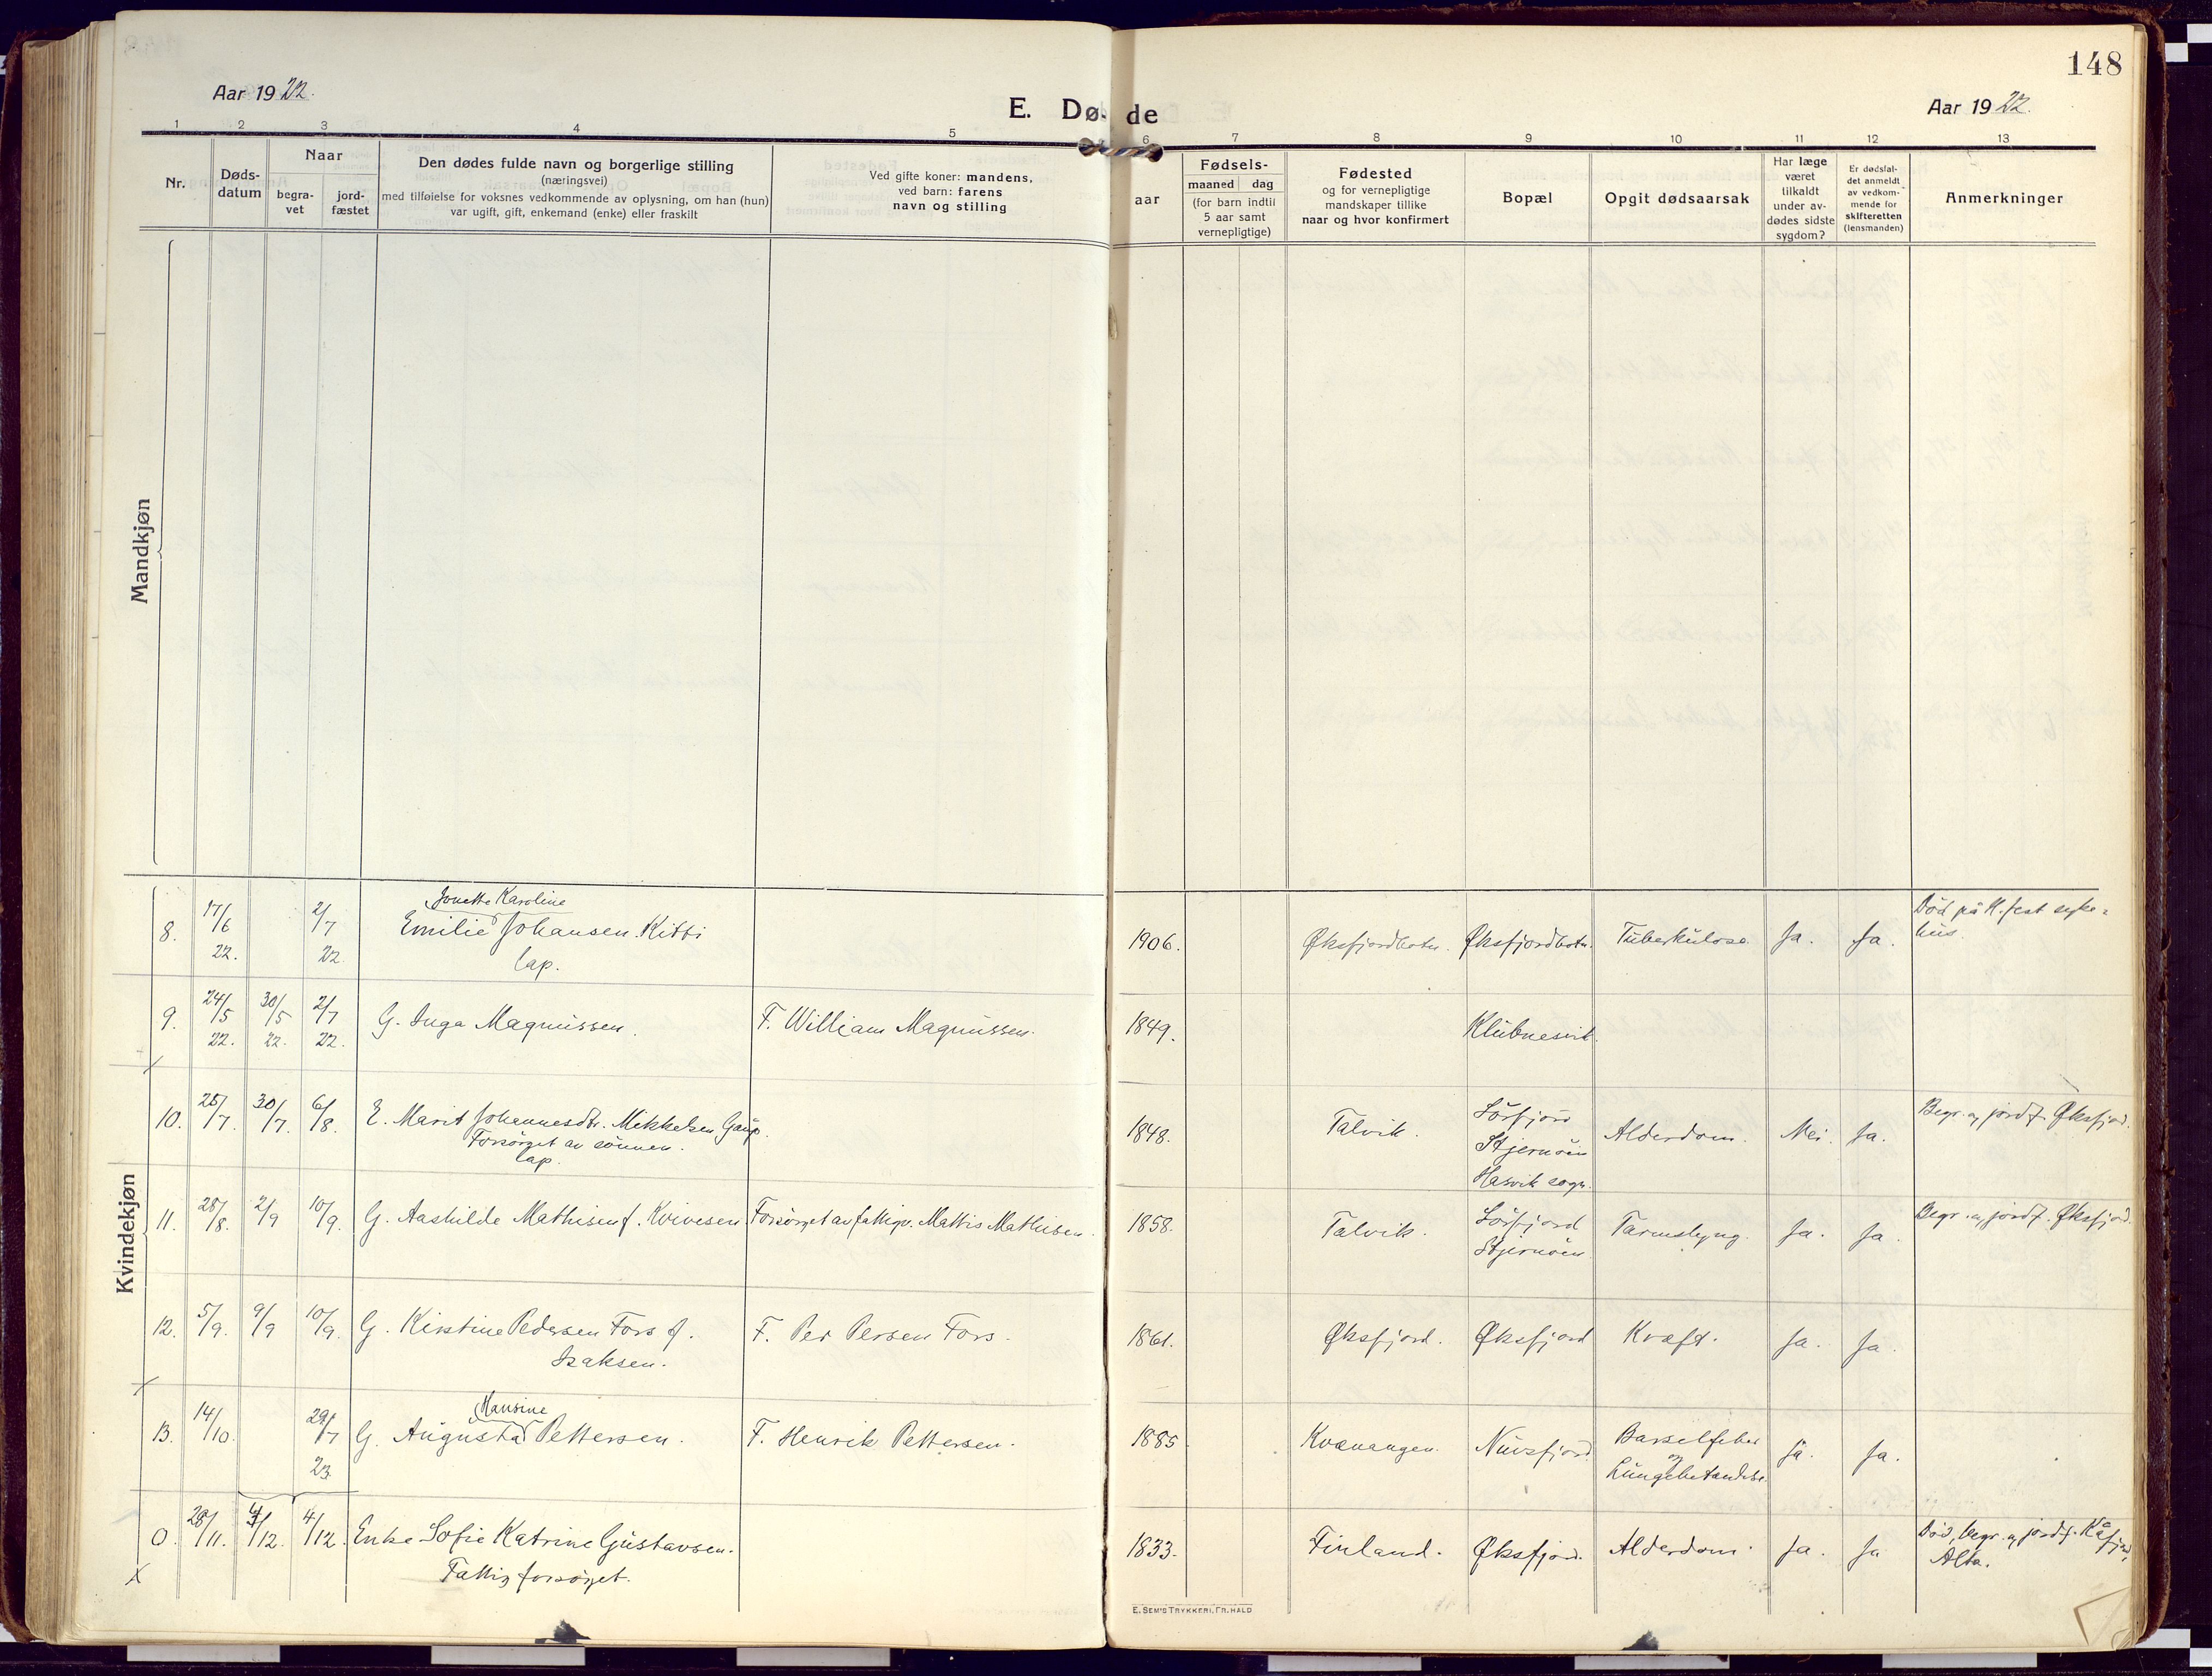 148
Aar 1922.
E. Dø de
Aar 1922.
1 2 3 4 5 6 7 8 9 10 11 12 13
Nr.
Døds-
datum
Naar
begra-
vet
jord-
fæstet
Den dødes fulde navn og borgerlige stilling
(næringsvei)
med tilføielse for voksnes vedkommende av oplysning, om han (hun)
var ugift, gift, enkemand (enke) eller fraskilt
Ved gifte koner: mandens,
ved barn: farens
navn og stilling
aar
Fødsels-
maaned dag
(for barn indtil
5 aar samt
vernepligtige)
Fødested
og for vernepligtige
mandskaper tillike
naar og hvor konfirmert
Bopæl
Opgit dødsaarsak
Har læge
været
tilkaldt
under av-
dødes sidste
sygdom?
Er dødsfal-
det anmeldt
av vedkom-
mende for
skifteretten
(lensmanden)
Anmerkninger
Mandkjøn
Kvindekjøn
Jonette Karoline
8. 17/6 22. 2/7 22. Emilie Johansen Kitti 1906. Øksfjordbotn. Øksfjordbotn. Tuberkulose. Ja. Ja.
lap.
Död på H.fest syke=
hus.
9. 24/5 22. 30/5 22. 2/7 22. G. Inga Magnussen. F. William Magnussen. 1849. Klubnesvik.
10. 25/7. 30/7. 6/8. E. Marit Johannesdtr. Mikkelsen Gaup. 1848. Talvik. Alderdom. Nei. Ja. Begr. og jordf. Øksfjord.
Forsörget av sönnen.
lap.
Lörfjord
Stjernöen
Hasvik sogn.
11. 28/8. 2/9 10/9. G. Aashilde Mathisen f. Kvivesen. Forsörget av fattigv. Mattis Mathisen. 1858. Talvik. Tarmslyng. Ja. Ja. Begr. og jordf. Øksfjord.
Lörfjord
Stjernöen
12. 5/9. 9/9 10/9. G. Kirstine Pedersen Fors f. F. Per Persen Fors. 1861. Øksfjord. Øksfjord Kræft. Ja. Ja.
Isaksen.
Hansine
13. 14/10. 29/7 23. G. Augusta Pettersen. F. Henrik Pettersen. 1885 Kvænangen. Nuvsfjord Barselfeber Ja. Ja.
og
Lungebetændelse
0. 28/11. 4/12. 4/12. Enke Sofie Katrine Gustavsen. 1833. Finland. Øksfjord. Alderdom. Ja. Ja
Fattigforsörget.
Död, begr. og jordf. Kåfjord,
Alta.
E. SEM'S TRYKKERI, FR.HALD